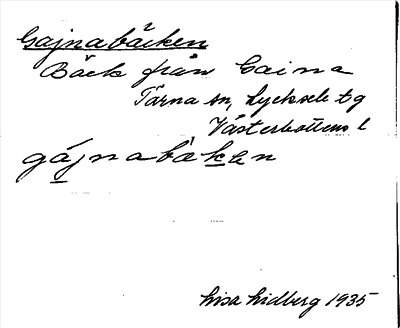 Gajnabäcken
Bäck från Gaina
Tärna sn, Lycksele tg
Västerbottens l
gájnabäken
Lisa Lidberg 1935